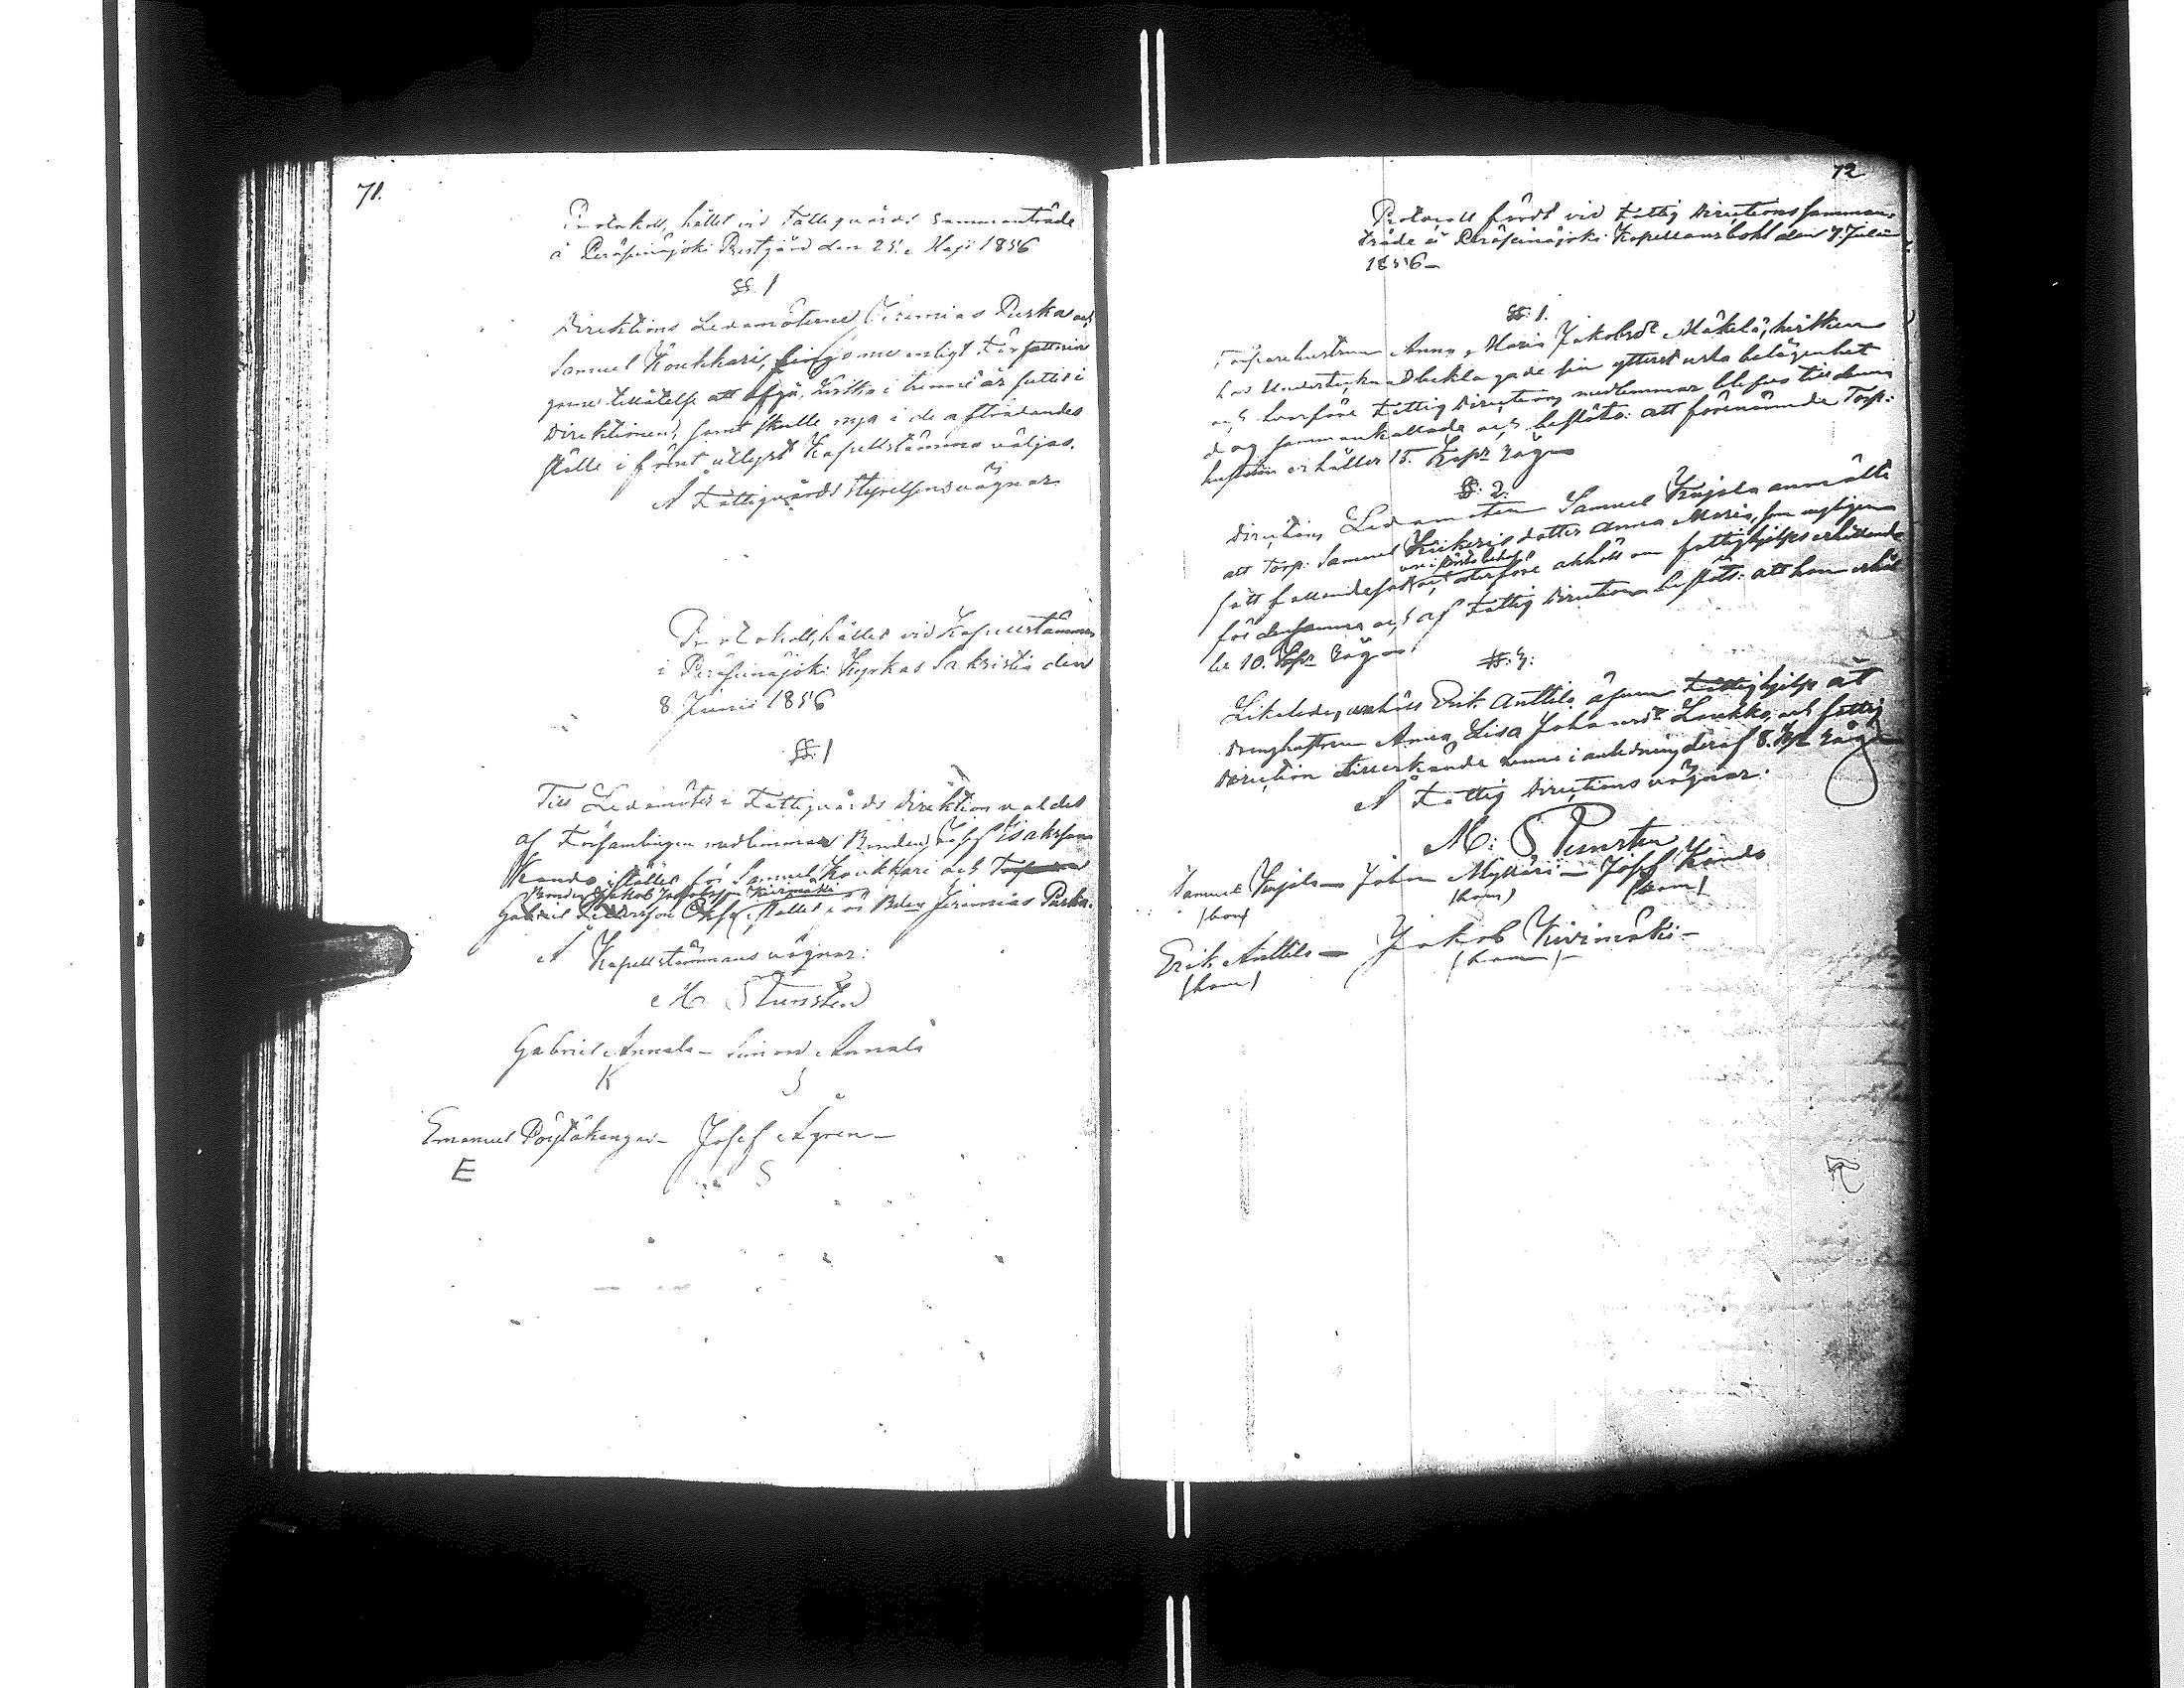 71.
Protokoll, hållet vid Fattigvårds sammanträde
å Peräseinäjoki Prestgård den 25 Maji 1856
§§. 1
Direktions Ledamöterne Jeremias Purka och
Samuel Koukkari, fingo nu enligt Författnin
garne tillåtelse att afgå, hvilka i trenne år suttit i
Direktionen, samt skulle nya i de afträdandes
ställe i främt utlyst Kapellstämma väljas.
Å Fattigvårds Styrelsens vägnar
Protokoll, hållet vid Kapellstämma
i Peräseinäjoki Kyrkas Sakristia den
8 Junii 1856
§§. 1
Till Ledamöter i Fattigvårds direktion valdes
af Församlingens medlemmar Bonden Josef Isaksson
Kando i stället för Samuel Koukkari och
Bonden Jakob Jakobsson Kivimäki
Gabriel i stället för Bden Jeremias Purka.
Å Kapellstämmans vägnar:
M. S Tunstén
Gabriel Annala – Simon Annala
K S
Emanuel – Josef Ågren –
E S
72
Protocoll fördt vid Fattig Directions samman-
träde å Peräseinäjoki Kapellansbohl den 7 Julii
1856 –
§§. 1.
Torparehustrun Anna Maria Jakobsdr Mäkelä, hvilken
hos Undertecknad beklagade sin ytterst usla belägenhet
och hvarföre Fattig Directions medlemmar blefvo till denna
dag sammankallade och beslöts: att förenämnde Torp.
hustru erhåller 15. Kapr Råg
§§. 2.
Directions Ledamoten Samuel Kujala anmälte
att Torp. Samuel dotter Anna Maria, som nyligen
fått fallandesot och derföre anhöll om fattighjelps erhållande
för densamma och af Fattig Direction beslöts: att hon erhål
ler 10. Kapr Råg
§§. 3.
Likaledes anhöll Erik Anttila äfven Fattighjelp åt
Drenghustrun Anna Lisa Johansdr Laukko, och fattig
Direction tillerkände henne i anledning deraf 8. Kpr Råg
Å Fattig Directions vägnar:
M: S Tunstén
Samuel Kujala – Johan Mylläri – Josef Kando
(bom) (bom) (bom)
Erik Anttila – Jakob Kivimäki –
(bom) (bom)